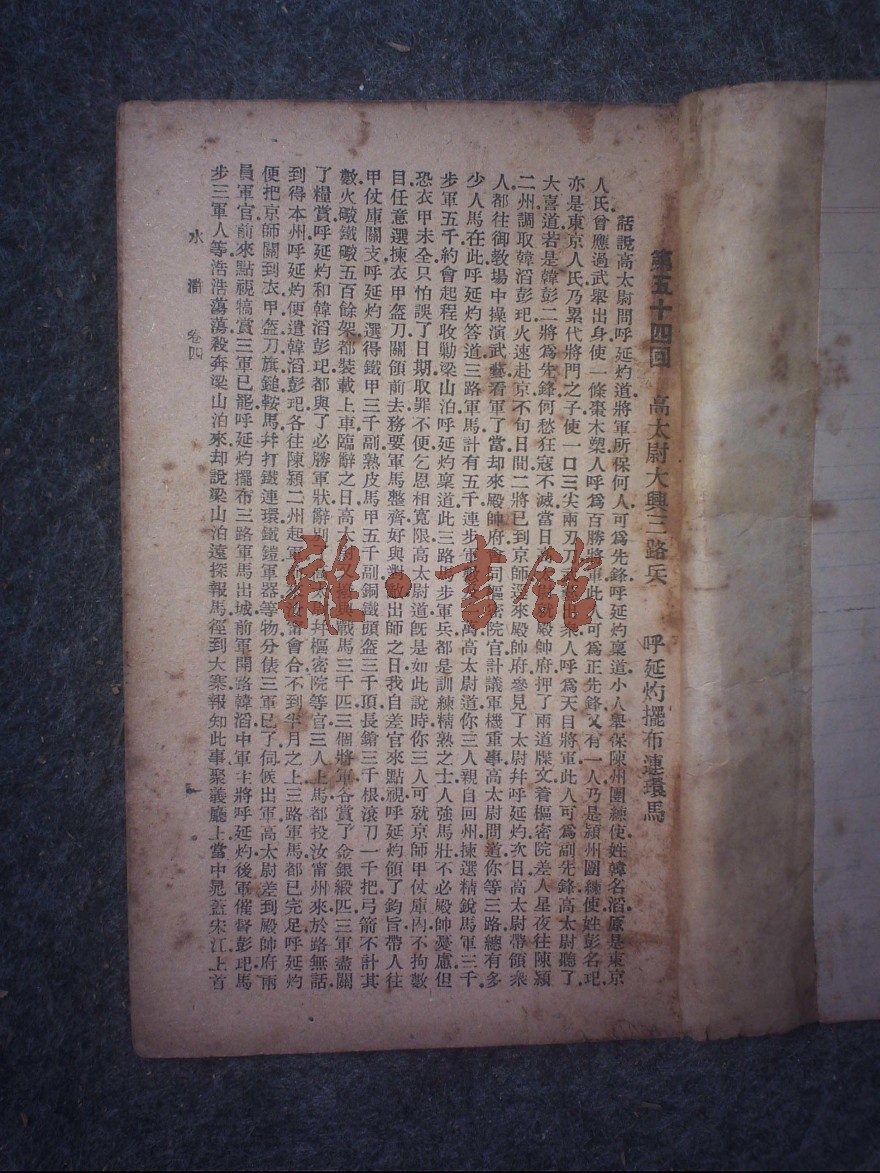 第五十四回 高太尉大興三路兵 呼延灼擺布連環馬
話說高太尉問呼延灼道將軍所保何人可爲先鋒呼延灼稟道小人舉保陳州團練使姓韓名滔原是東京
人氏曾應過武舉出身使一條棗木槊人呼爲百勝將軍此人可爲正先鋒又有一人乃是潁州團練使姓彭名玘
亦是東京人氏乃累代將門之子使一口三尖兩刃刀武藝出衆人呼爲天目將軍此人可爲副先鋒高太尉聽了
大喜道若是韓彭二將爲先鋒何愁狂寇不滅當日高就殿帥府押了兩道牒文着樞密院差人星夜往陳潁
二州調取韓滔彭玘火速赴京不旬日間二將已到京師逕來殿帥府參見了太尉幷呼延灼次日高太尉帶領衆
人都往御敎場中操演武藝看軍了當却來殿帥府會同樞密院官計議軍機重事高太尉問道你等三路總有多
少人馬在此呼延灼答道三路軍馬計有五千連步軍數及萬高太尉道你三人親自回州揀選精銳馬軍三千
步軍五千約會起程收勦梁山泊呼延灼稟道此三路馬步軍兵都是訓練精熟之士人強馬壯不必殿帥憂慮但
恐衣甲未全只怕誤了日期取罪不便乞恩相寬限高太尉道旣是如此說時你三人可就京師甲仗庫內不拘數
目任意選揀衣甲盔刀關領前去務要軍馬整齊好與對敵出師之日我自差官來點視呼延灼領了鈞旨帶人往
甲仗庫關支呼延灼選得鐵甲三千副熟皮馬甲五千副銅鐵頭盔三千頂長鎗三千根滾刀一千把弓箭不計其
數火礮鐵礮五百餘架都裝載上車臨辭之日高太尉又撥與戰馬三千匹三個將軍各賞了金銀緞匹三軍盡關
了糧賞呼延灼和韓滔彭玘都與了必勝軍狀辭別了高太尉幷樞密院等官三人上馬都投汝甯州來於路無話
到得本州呼延灼便遣韓滔彭玘各往陳潁二州起軍前來汝甯會合不到半月之上三路軍馬都已完足呼延灼
便把京師關到衣甲盔刀旗鎗鞍馬幷打鐵連環鐵鎧軍器等物分俵三軍已了伺候出軍高太尉差到殿帥府兩
員軍官前來點視犒賞三軍已罷呼延灼擺布三路軍馬出城前軍開路韓滔中軍主將呼延灼後軍催督彭玘馬
步三軍人等浩浩蕩蕩殺奔梁山泊來却說梁山泊遠探報馬徑到大寨報知此事聚義廳上當中晁蓋宋江上首
水滸 卷四
一
雜·書館